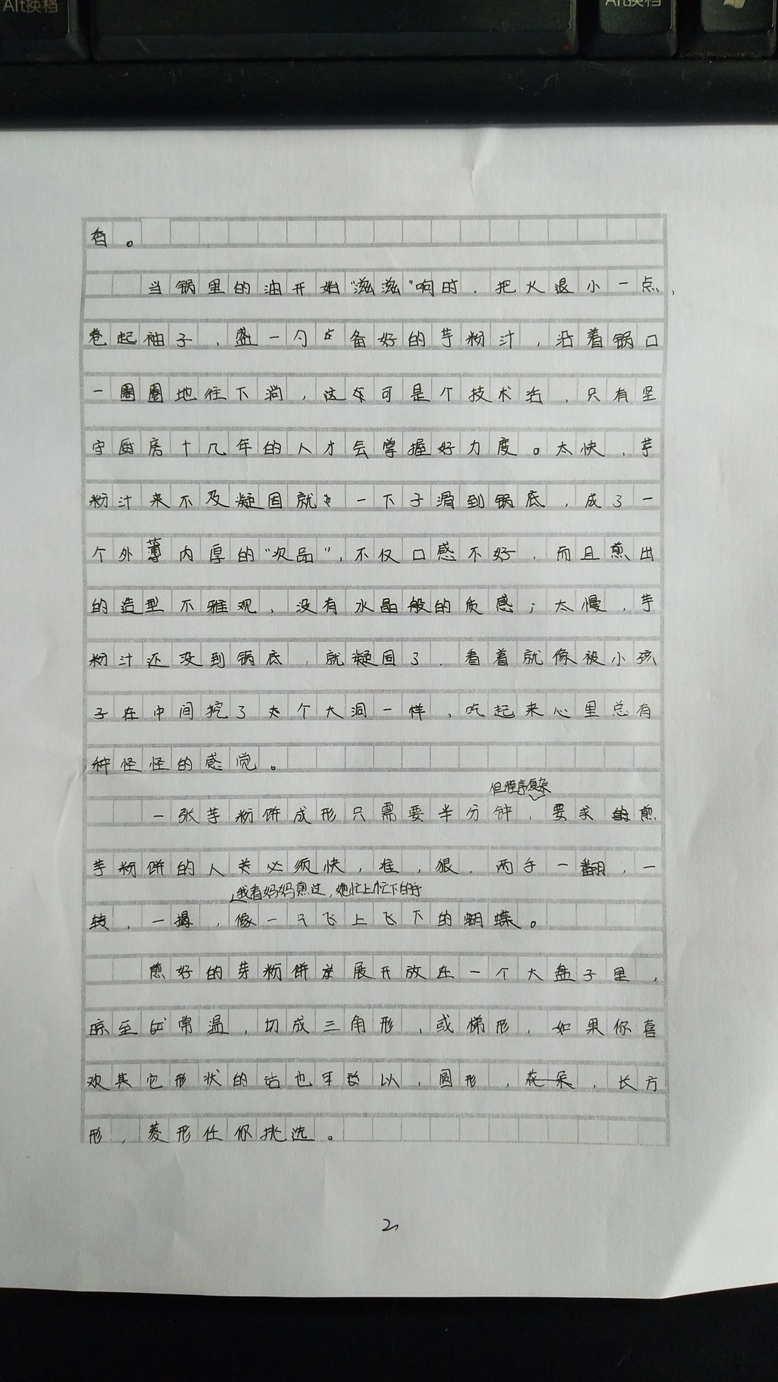 Alt换档
Alt换档
香。
当锅里的油开始“滋滋”响时，把火退小一点，
卷起袖子，盛一勺备好的芋粉汁，沿着锅口
一圈圈地往下淌，这可是个技术活，只有坚
守厨房十几年的人才会掌握好力度。太快，芋
粉汁来不及凝固就一下子滑到锅底，成了一
个外薄内厚的“次品”，不仅口感不好，而且煎出
的造型不雅观，没有水晶般的质感；太慢，芋
粉汁还没到锅底，就凝固了，看着就像被小孩
子在中间挖了个大洞一样，吃起来心里总有
种怪怪的感觉。
但程序复杂
一张芋粉饼成形只需要半分钟，要求煎
芋粉饼的人必须快，准，狠，两手一翻，一
我看妈妈煎过，她忙上忙下的手
转，一撮，像一只飞上飞下的蝴蝶。
煎好的芋粉饼展开放在一个大盘子里，
晾至常温，切成三角形，或梯形，如果你喜
欢其它形状的话也可以，圆形，花朵，长方
形，菱形任你挑选。
2